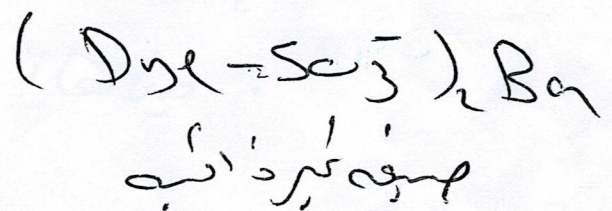 ( Dye – SO3⁻ )₂ Ba
صبغة غير ذائبة